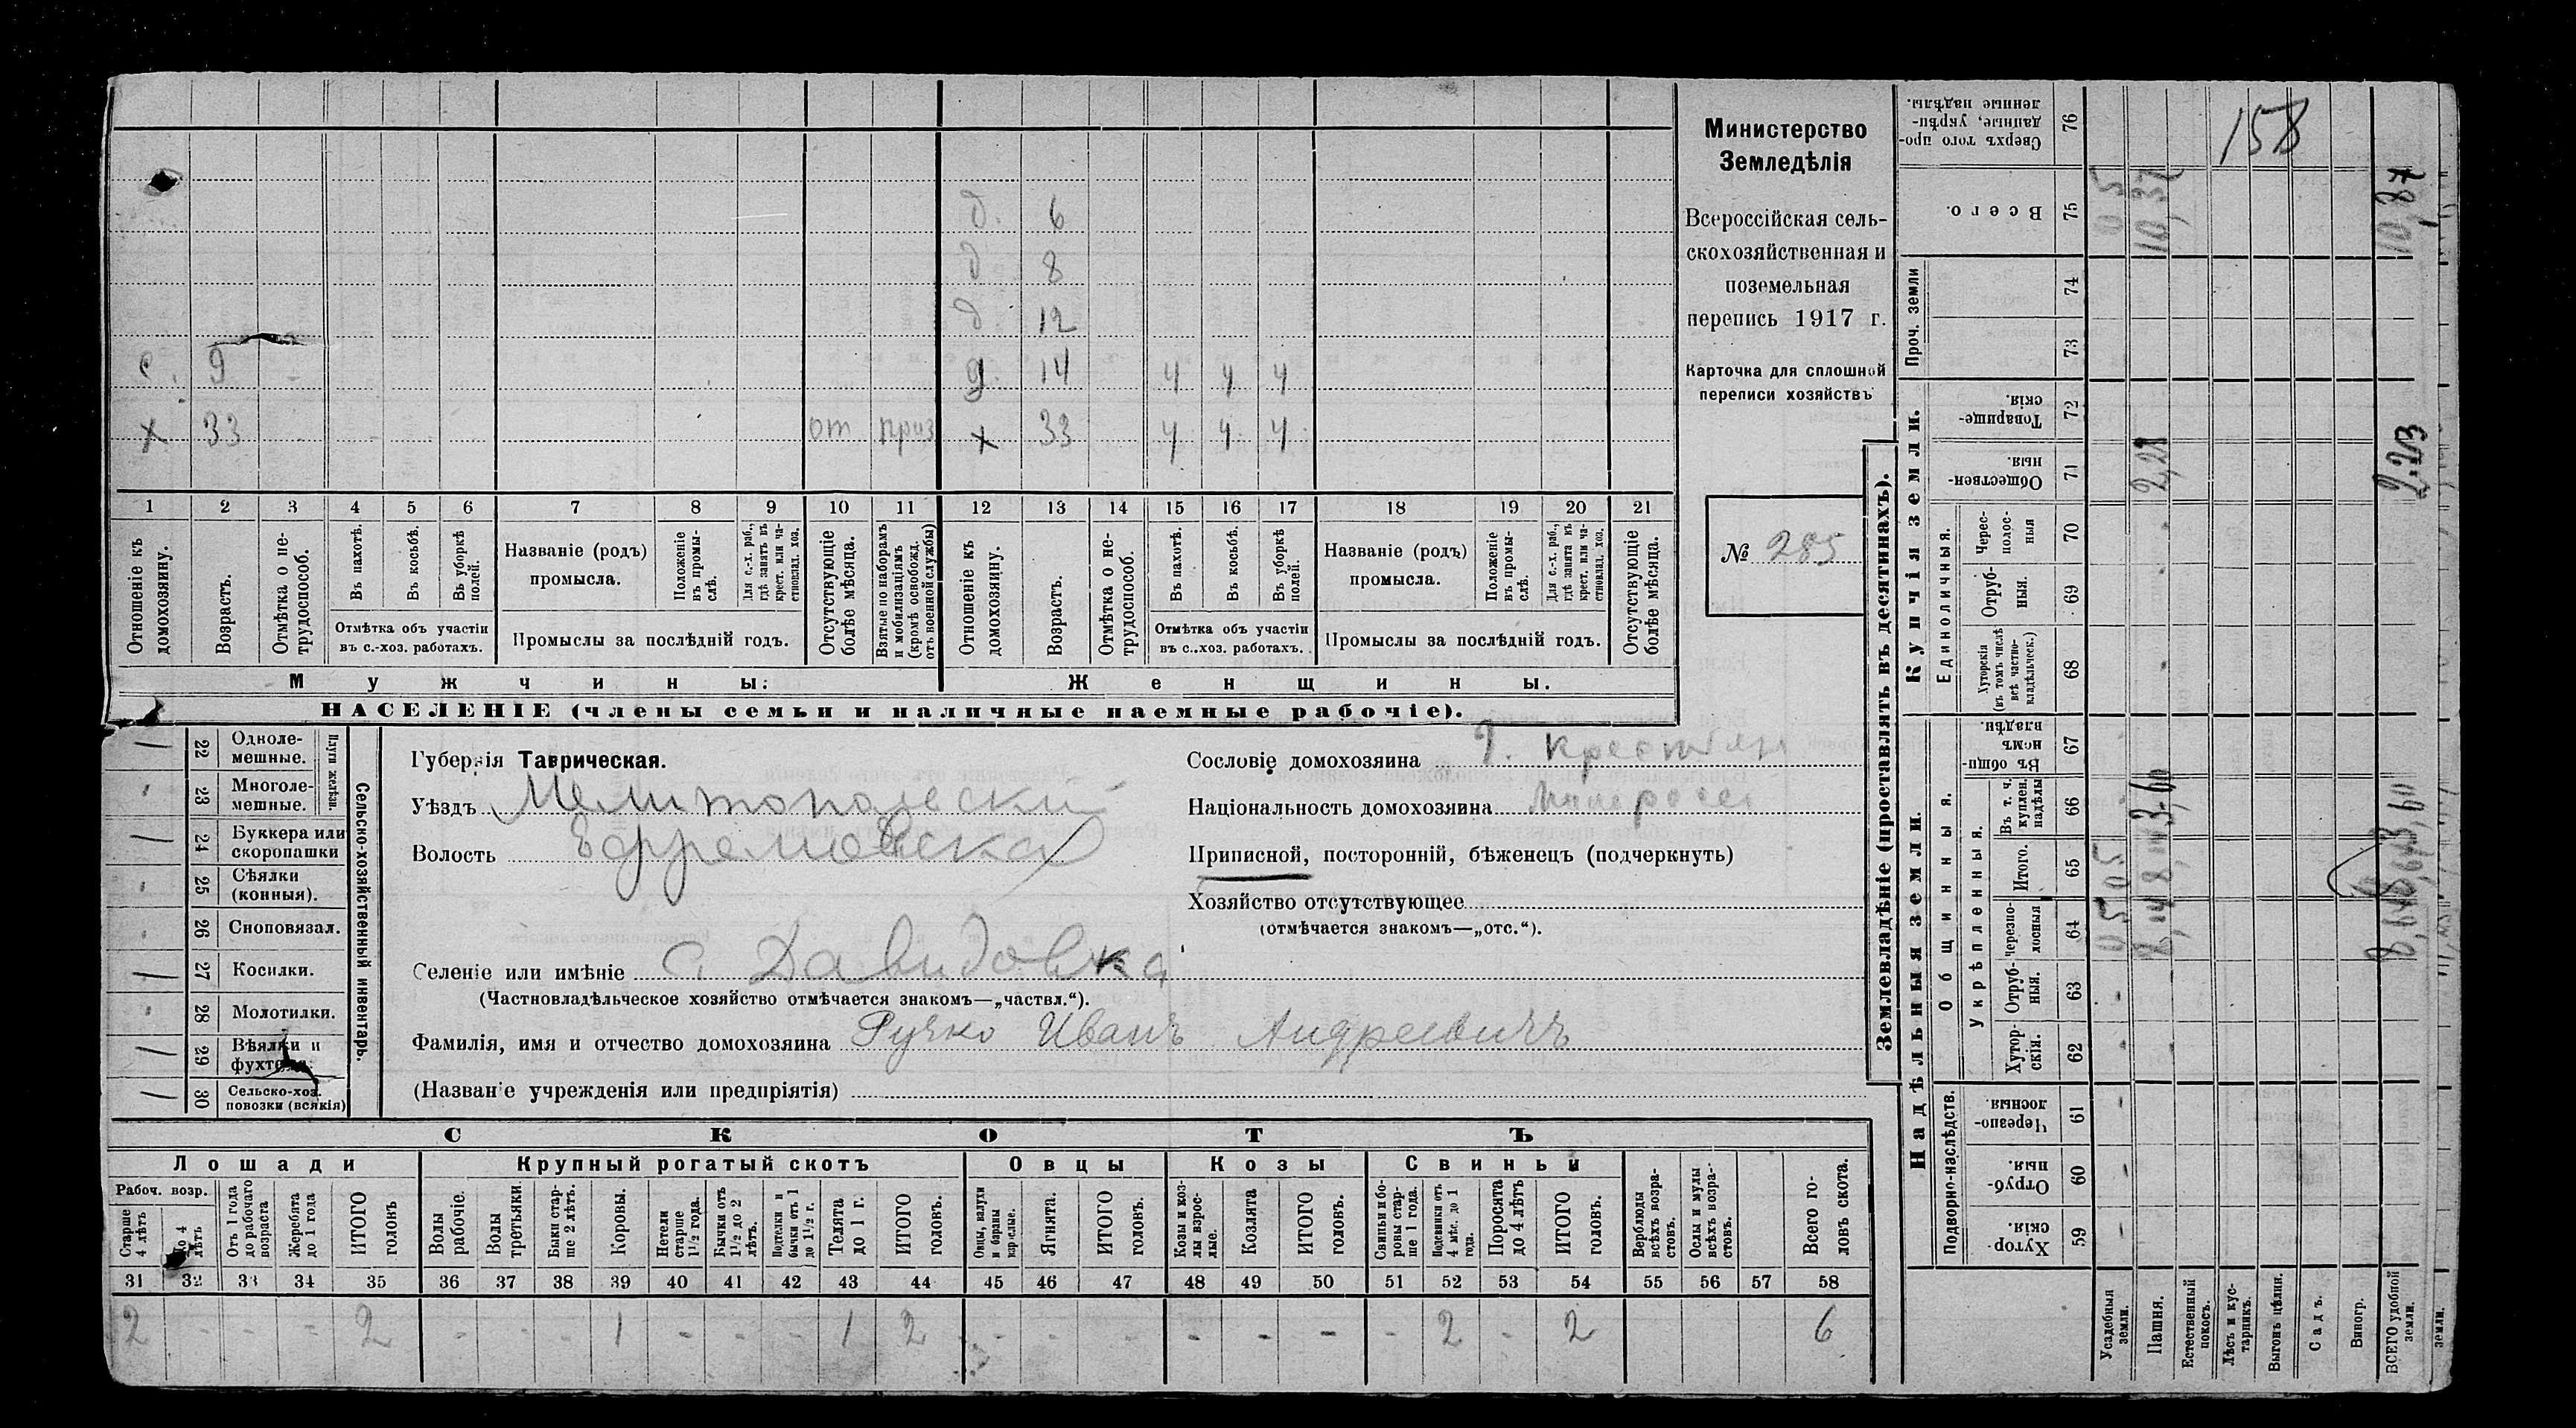 д. 6
д 8
д. 12
с. 9 д. 14 4 4 4
х 33 от приз х 33 4 4 4
1 2 3 4 5 6 7 8 9 10 11 12 13 14 15 16 17 18 19 20 21
Отношеніе къ домохозяину.
Возрастъ.
Отмѣтка о нетрудоспособ.
Въ пахотѣ.
Въ косьбѣ.
Въ уборкѣ полей.
Отмѣтка объ участіи
въ с.-хоз. работахъ.
Названіе (родъ)
промысла.
Положеніе въ промыслѣ.
Для с.-х. раб., гдѣ занятъ въ крест. или частновлад. хоз.
Промыслы за послѣдній годъ.
Отсутствующіе болѣе мѣсяца.
Взятые по наборамъ и мобилизаціямъ (кромѣ освобожд. отъ военной службы)
Отношеніе къ домохозяину.
Возрастъ.
Отмѣтка о нетрудоспособ.
Въ пахотѣ.
Въ косьбѣ.
Въ уборкѣ полей.
Отмѣтка объ участіи
въ с.-хоз. работахъ.
Названіе (родъ)
промысла.
Положеніе въ промыслѣ.
Для с.-х. раб., гдѣ занята въ крест. или частновлад. хоз.
Промыслы за послѣдній годъ.
Отсутствующіе болѣе мѣсяца.
Мужчины.
Женщины.
НАСЕЛЕНІЕ (члены семьи и наличные наемные рабочіе).
Министерство
Земледѣлія
Всероссійская сель-
скохозяйственная и
поземельная
перепись 1917 г.
Карточка для сплошной
переписи хозяйствъ
№ 285
22 Одноле-
мешные.
23 Многоле-
мешные.
Плуги желѣзн.
24 Буккера или
скоропашки
25 Сѣялки
(конныя).
26 Сноповязал.
27 Косилки.
28 Молотилки.
29 Вѣялки и
фухтели.
30 Сельско-хоз.
повозки (всякія)
Сельско-хозяйственный инвентарь.
Губернія Таврическая.
Уѣздъ Мелитопольскій
Волость Ефремовска
Селеніе или имѣніе с. Давидовка
(Частновладѣльческое хозяйство отмѣчается знакомъ—„частвл.“).
Фамилія, имя и отчество домохозяина Ручко Иванъ Андреевичъ
(Названіе учрежденія или предпріятія)
Сословіе домохозяина крестьян
Національность домохозяина Малеросс
Приписной, посторонній, бѣженецъ (подчеркнуть)
Хозяйство отсутствующее
(отмѣчается знакомъ—„отс.“).
СКОТЪ
Лошади Крупный рогатый скотъ Овцы Козы Свиньи
Рабоч. возр.
Старше 4 лѣтъ
До 4 лѣтъ
Отъ 1 года до рабочаго возраста
Жеребята до 1 года
ИТОГО головъ
Волы рабочіе.
Волы третьяки.
Быки старше 2 лѣтъ.
Коровы.
Нетели старше 1½ года.
Бычки отъ 1½ до 2 лѣтъ.
Подтелки и бычки отъ 1 до 1½ г.
Телята до 1 г.
ИТОГО головъ.
Овцы, валухи и бараны взрослые.
Ягнята.
ИТОГО головъ.
Козы и козлы взрослые.
Козлята
ИТОГО головъ.
Свиньи и боровы старше 1 года.
Подсвинки отъ 4 мѣс. до 1 года.
Поросята до 4 лѣтъ
ИТОГО головъ.
Верблюды всѣхъ возрастовъ.
Ослы и мулы всѣхъ возрастовъ.
Всего головъ скота.
31 32 33 34 35 36 37 38 39 40 41 42 43 44 45 46 47 48 49 50 51 52 53 54 55 56 57 58
2 - - - 2 - - - 1 - - - 1 2 - - - - - - - 2 - 2 6
158
Землевладѣніе (проставлять въ десятинахъ).
Надѣльныя земли.
Купчія земли.
Проч. земли
Общинныя.
Укрѣпленныя.
Единоличныя.
Подворно-наслѣдств.
76 Сверхъ того проданные, укрѣпленные надѣлы.
75 Всего. 05 10,37 10,87
74
73
72 Товарищескія.
71 Общественныя. 2,21
70 Чересполосныя
69 Отрубныя.
68 Хуторскія (въ томъ числѣ всѣ частновладѣльческ.)
67 Въ общинномъ владѣн.
66 Въ т. ч. куплен. надѣлы 3,60
65 Итого. 05
64 Черезполосныя 05
63 Отрубныя.
62 Хуторскія.
61 Черезполосныя.
60 Отрубныя.
59 Хуторскія.
Усадебныя земли.
Пашня.
Естественный покосъ.
Лѣсъ и кустарникъ.
Выгонъ цѣлин.
Садъ.
Виногр.
ВСЕГО удобной земли.
земли.